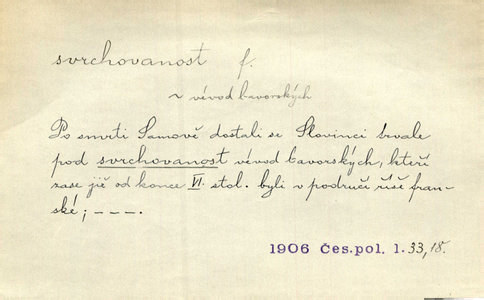 svrchovanost f.
~ vévod bavorských
Po smrti Samově dostali se Slovinci trvale
pod svrchovanost vévod bavorských, kteří
zase již od konce VI. stol. byli v područí říše fran-
ské; – – – .
1906 Čes.pol. 1. 33, 18.